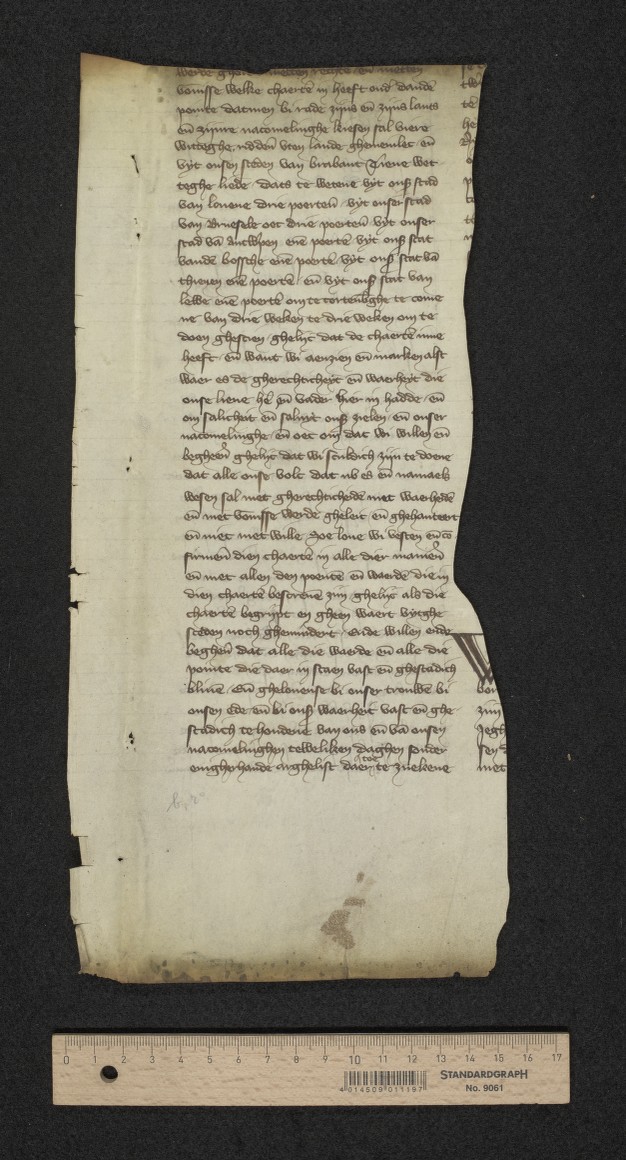 vonisse welke chaertē in heeft ond' dandē
pointe datmen bi rade zijns eñ zijns lants
eñ zijnre nacomelinghe kiesen sal viere
witteghe ridderē vten lande ghemeinlec eñ
vyt onsen steden van brabant Tiene wet
teghe liede dats te wetene vyt onß stad
van louene drie poerterē vyt onser stad
van Bruesele oec drie poerterē vyt onser
stad vā Antwerpen enē poertē vyt onß stat
vandē bossche enē poertē vyt onß stat vā
thienen enē poertē eñ vyt onß stat van
lewe enē poertē om te cortenbghe te come
ne van drie weken te drie weken om te
doen ghescien ghelijc dat de chaertē inne
heeft eñ want wi aenzien eñ marken alst
waer es de gherechticheyt eñ waerheyt die
onse lieue hē eñ vader hier in hadde eñ
om salicheit eñ profijt onß zielen eñ onser
nacomelinghe eñ oec om dat wi willen eñ
begheerē ghelijc dat wi sculdich zijn te doene
dat alle onse volc dat nv es eñ namaels
wesen sal met gherechtichedē met waerhedē
eñ met vonisse werde gheleit eñ ghehanteert
eñ niet met wille Zoe loue wi vesten eñ cō
firmerē dien chaertē in alle dier manierē
eñ met allen den poentē eñ waerdē die in
dien chaertē bescreuē zijn ghelijc als die
chaertē begrijpt en gheen waert vytghe
steden noch ghemindert Ende willen ende
begherē dat alle die waerde eñ alle die
pointe die daer in staen vast eñ ghestadich
bliuē Eñ ghelouense bi onser trouwē bi
onsen ede eñ bi onß waerheit vast eñ ghe
stadich te houdene van ons eñ vā onsen
nacomelinghen teweliken daghen sonder
enigherhande arghelist daer toe te zuekene
0 1 2 3 4 5 6 7 8 9 10 11 12 13 14 15 16 17
STANDARDGRAPH
No. 9061
4 014509 011197